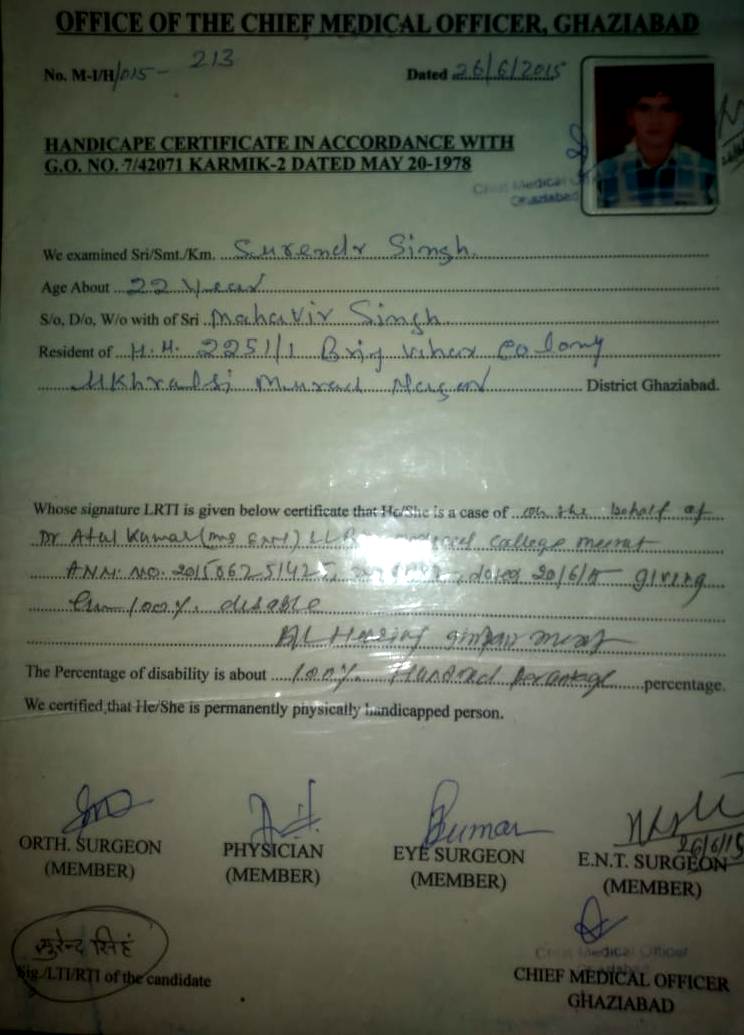 OFFICE OF THE CHIEF MEDICAL OFFICER, GHAZIABAD
No. M-I/H/015- 213 Dated 26/6/2015
HANDICAPE CERTIFICATE IN ACCORDANCE WITH
G.O. NO. 7/42071 KARMIK-2 DATED MAY 20-1978
Chief Medical
Ghaziabad
We examined Sri/Smt./Km. Surendr Singh
Age About 22 Year
S/o, D/o, W/o with of Sri Mahavir Singh
Resident of H.N. 2251/1 Brig Vihar Colony
Murad Nagar District Ghaziabad.
Whose signature LRTI is given below certificate that He/She is a case of on the behalf of
Dr Atul Kumar college meerut
dated 20/6/15 giving
100% disable
The Percentage of disability is about 100% Hundred percentage.
We certified that He/She is permanently physically handicapped person.
ORTH. SURGEON PHYSICIAN EYE SURGEON E.N.T. SURGEON
26/6/15
(MEMBER) (MEMBER) (MEMBER) (MEMBER)
सुरेन्द सिहं
Sig./LTI/RTI of the candidate
Chief Medical Officer
Ghaziabad
CHIEF MEDICAL OFFICER
GHAZIABAD